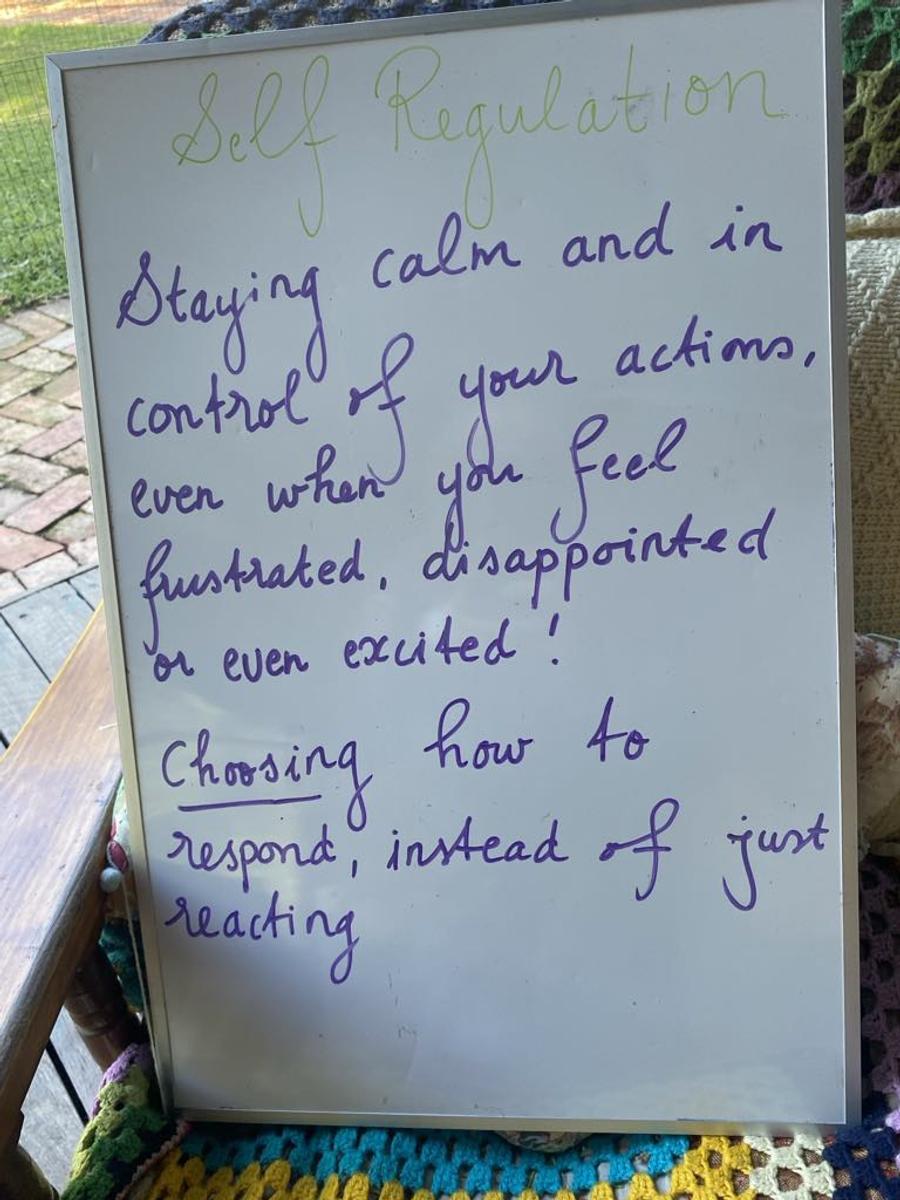 Self Regulation
Staying calm and in
control of your actions,
even when you feel
frustrated, disappointed
or even excited!
Choosing how to
respond, instead of just
reacting